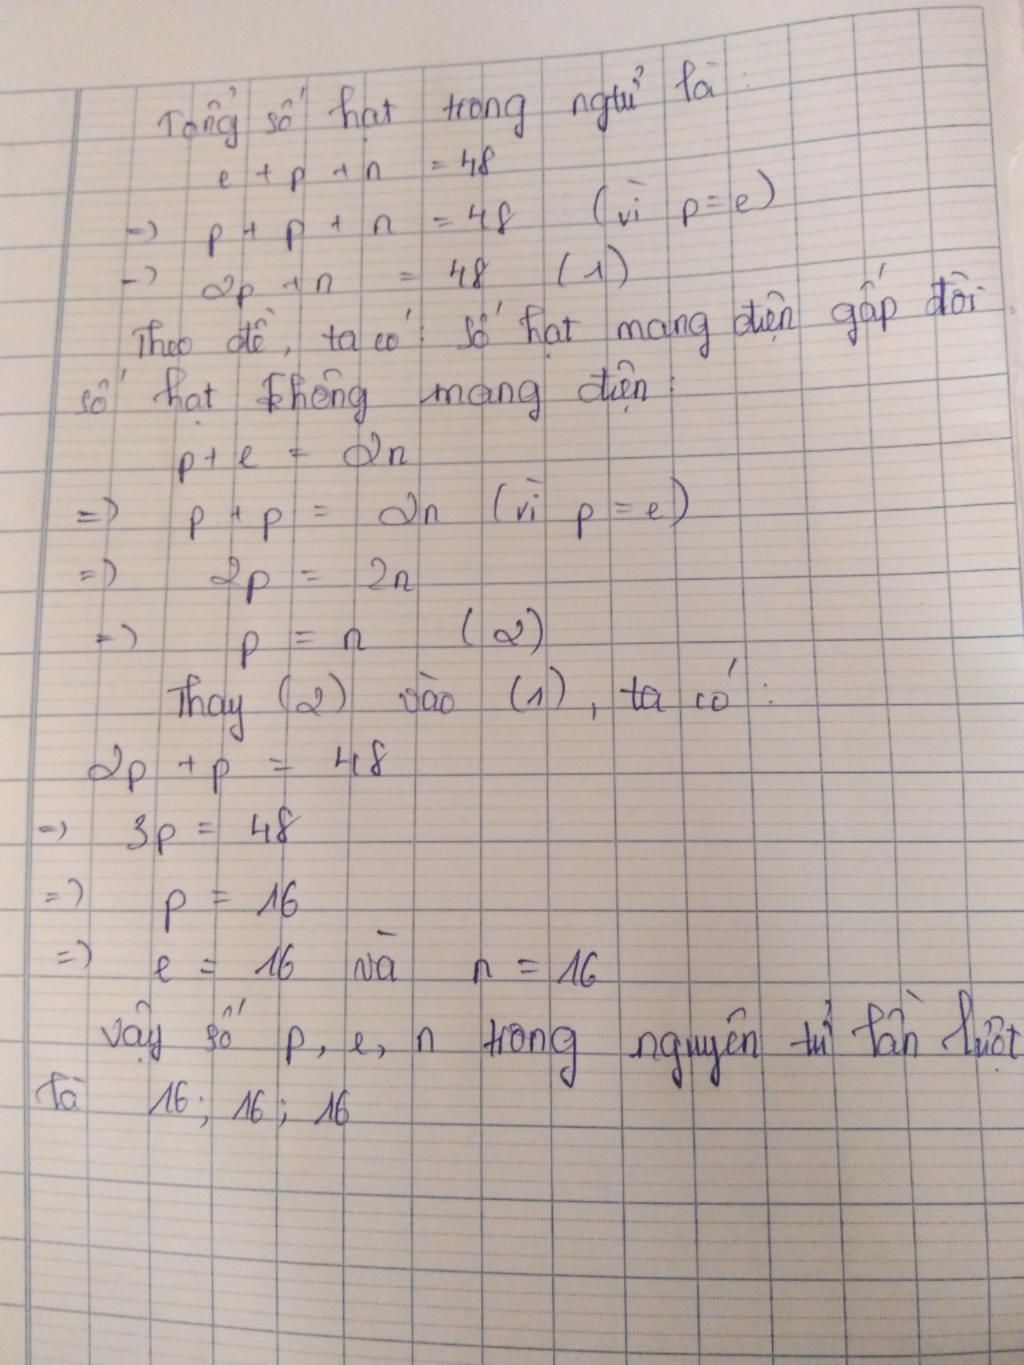 Tổng số hạt trong ngtử là :
e + p + n = 48
=> p + p + n = 48 (vì p = e)
=> 2p + n = 48 (1)
Theo đề, ta có : số hạt mang điện gấp đôi
số hạt không mang điện :
p + e = 2n
=> p + p = 2n (vì p = e)
=> 2p = 2n
=> p = n (2)
Thay (2) vào (1), ta có :
2p + p = 48
=> 3p = 48
=> p = 16
=> e = 16 và n = 16
Vậy số p, e, n trong nguyên tử lần lượt
là 16 ; 16 ; 16